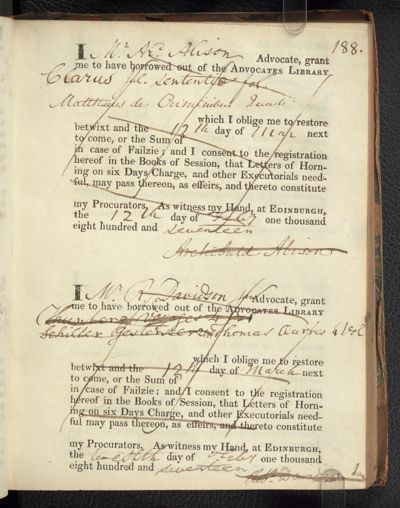 188.
I Mr Ar. Alison Advocate, grant
me to have borrowed out of the ADVOCATES LIBRARY
Clarus
Matthaeus de Criminibus
which I oblige me to restore
betwixt and the 12th day of May next
to come, or the Sum of
in case of Failzie; and I consent to the registration
hereof in the Books of Session, that Letters of Horn-
ing on six Days Charge, and other Executorials need-
ful, may pass thereon, as effeirs, and thereto constitute
my Procurators. As witness my Hand, at EDINBURGH,
the 12th day of Feby one thousand
eight hundred and seventeen
Archibald Alison
I Mr Davidson Advocate, grant
me to have borrowed out of the ADVOCATES LIBRARY
Schiller Thomas
which I oblige me to restore
betwixt and the 12th day of March next
to come, or the Sum of
in case of Failzie; and I consent to the registration
hereof in the Books of Session, that Letters of Horn-
ing on six Days Charge, and other Executorials need-
ful may pass thereon, as effeirs, and thereto constitute
my Procurators. As witness my Hand, at EDINBURGH,
the twelfth day of Feby one thousand
eight hundred and seventeen